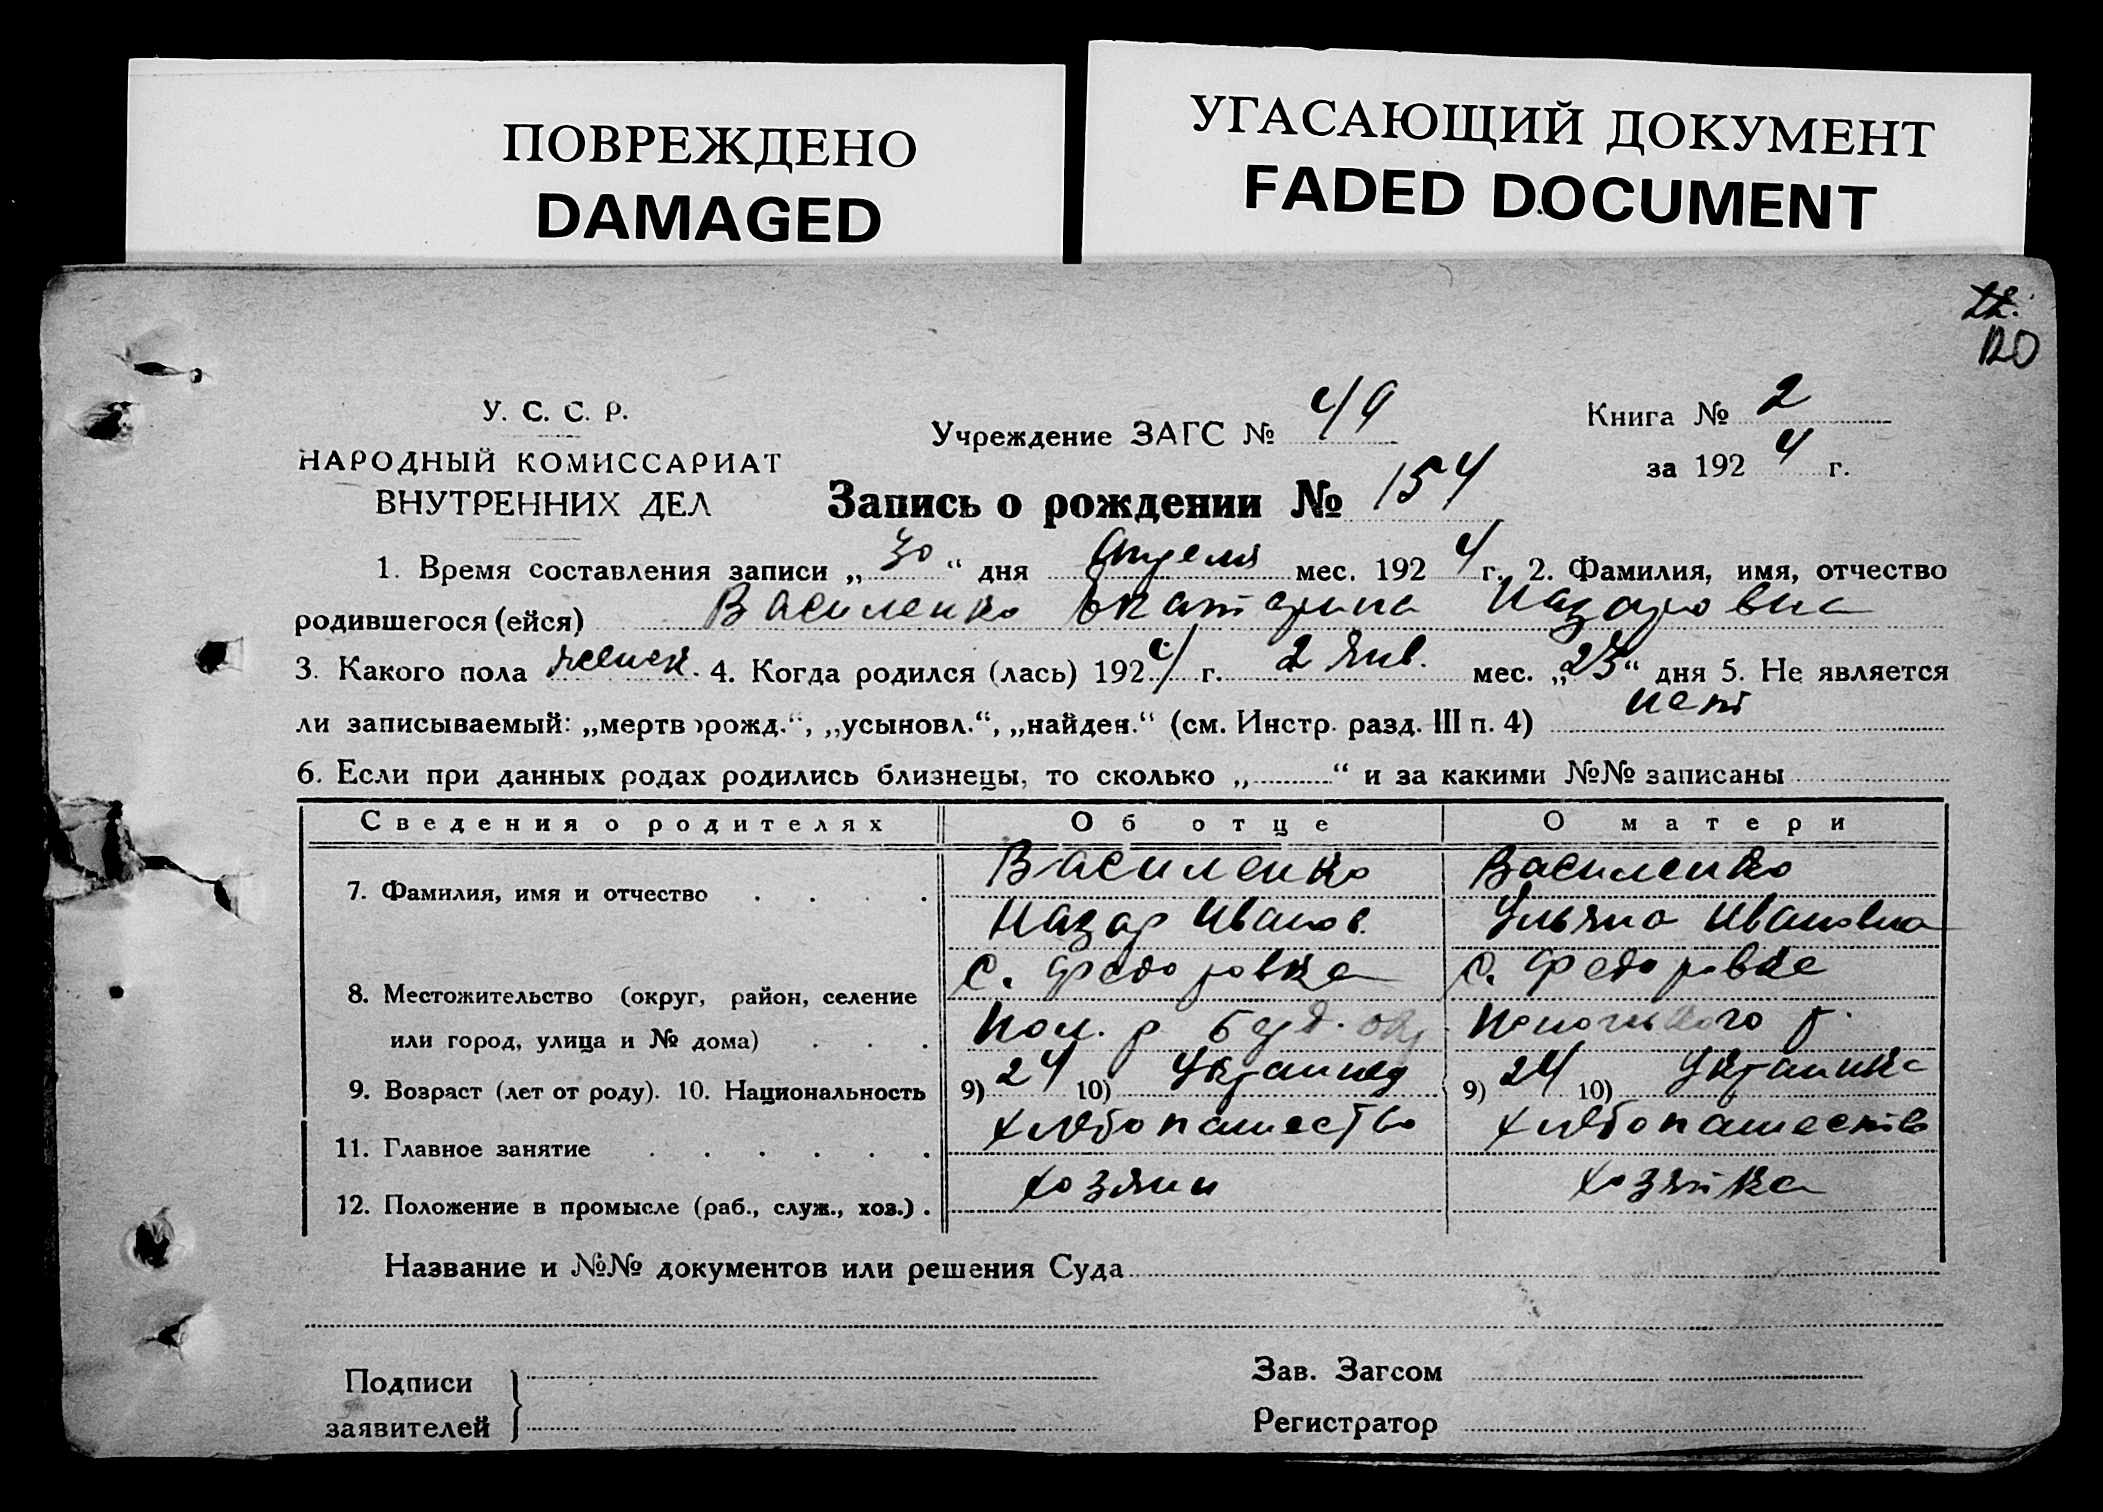 ПОВРЕЖДЕНО
DAMAGED
УГАСАЮЩИЙ ДОКУМЕНТ
FADED DOCUMENT
120
У. С. С. Р.
НАРОДНЫЙ КОМИССАРИАТ
ВНУТРЕННИХ ДЕЛ
Учреждение ЗАГС № 49
Книга № 2
за 1924 г.
Запись о рождении № 154
1. Время составления записи „30“ дня Апреля мес. 1924 г. 2. Фамилия, имя, отчество
родившегося (ейся) Василенко Екатерина Назаровна
3. Какого пола женск. 4. Когда родился (лась) 1924 г. 2 Янв. мес. „23“ дня 5. Не является
ли записываемый: „мертворожд.“, „усыновл.“, „найден.“ (см. Инстр. разд. III п. 4) нет
6. Если при данных родах родились близнецы, то сколько „ “ и за какими №№ записаны
Сведения о родителях Об отце О матери
7. Фамилия, имя и отчество Василенко Василенко
Назар Иванов. Ульяна Ивановна
8. Местожительство (округ, район, селение с. Федоровка с. Федоровка
или город, улица и № дома) Пом. р
9. Возраст (лет от роду). 10. Национальность 9) 24 10) Украинец 9) 24 10) Украинка
11. Главное занятие хлебопашество хлебопашество
12. Положение в промысле (раб., служ., хоз.) хозяин хозяйка
Название и №№ документов или решения Суда
Подписи
заявителей
Зав. Загсом
Регистратор